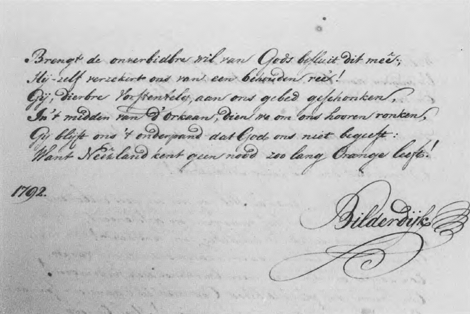 Brengt de onverbidbre wil van Gods besluit dit meê;
Hij-zelf verzekert ons van een behouden reê!
Gij, dierbre Vorstentelg, aan ons gebed geschonken,
In't midden van d'Orkaan, dien we om ons hooren ronken,
Gij blijft ons 't onderpand dat God ons niet begeeft:
Want Neêrland kent geen nood zoo lang Orange leeft!
1792.
Bilderdijk